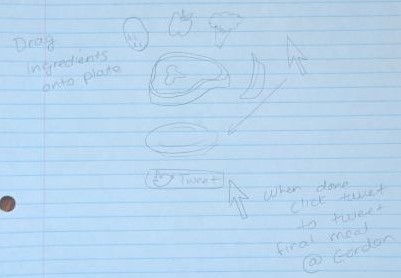 Drag
ingredients
onto plate
Tweet
When done
click tweet
to tweet
final meal
@ Gordon